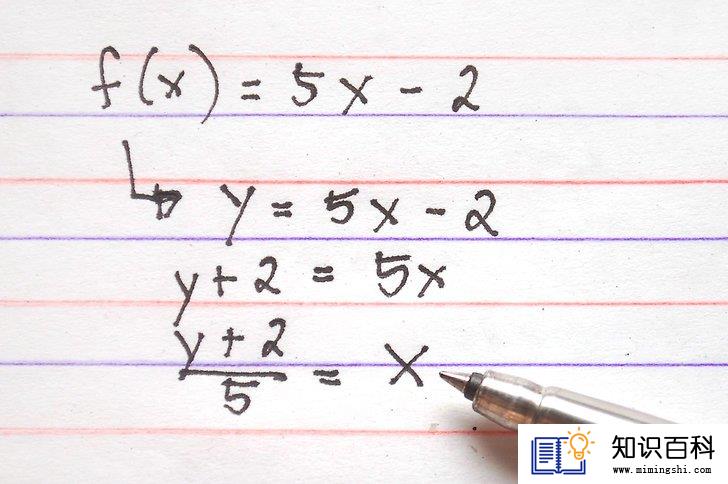 f(x) = 5x - 2
y = 5x - 2
y + 2 = 5x
y + 2
5 = x
知识百科
www.mimingshi.com